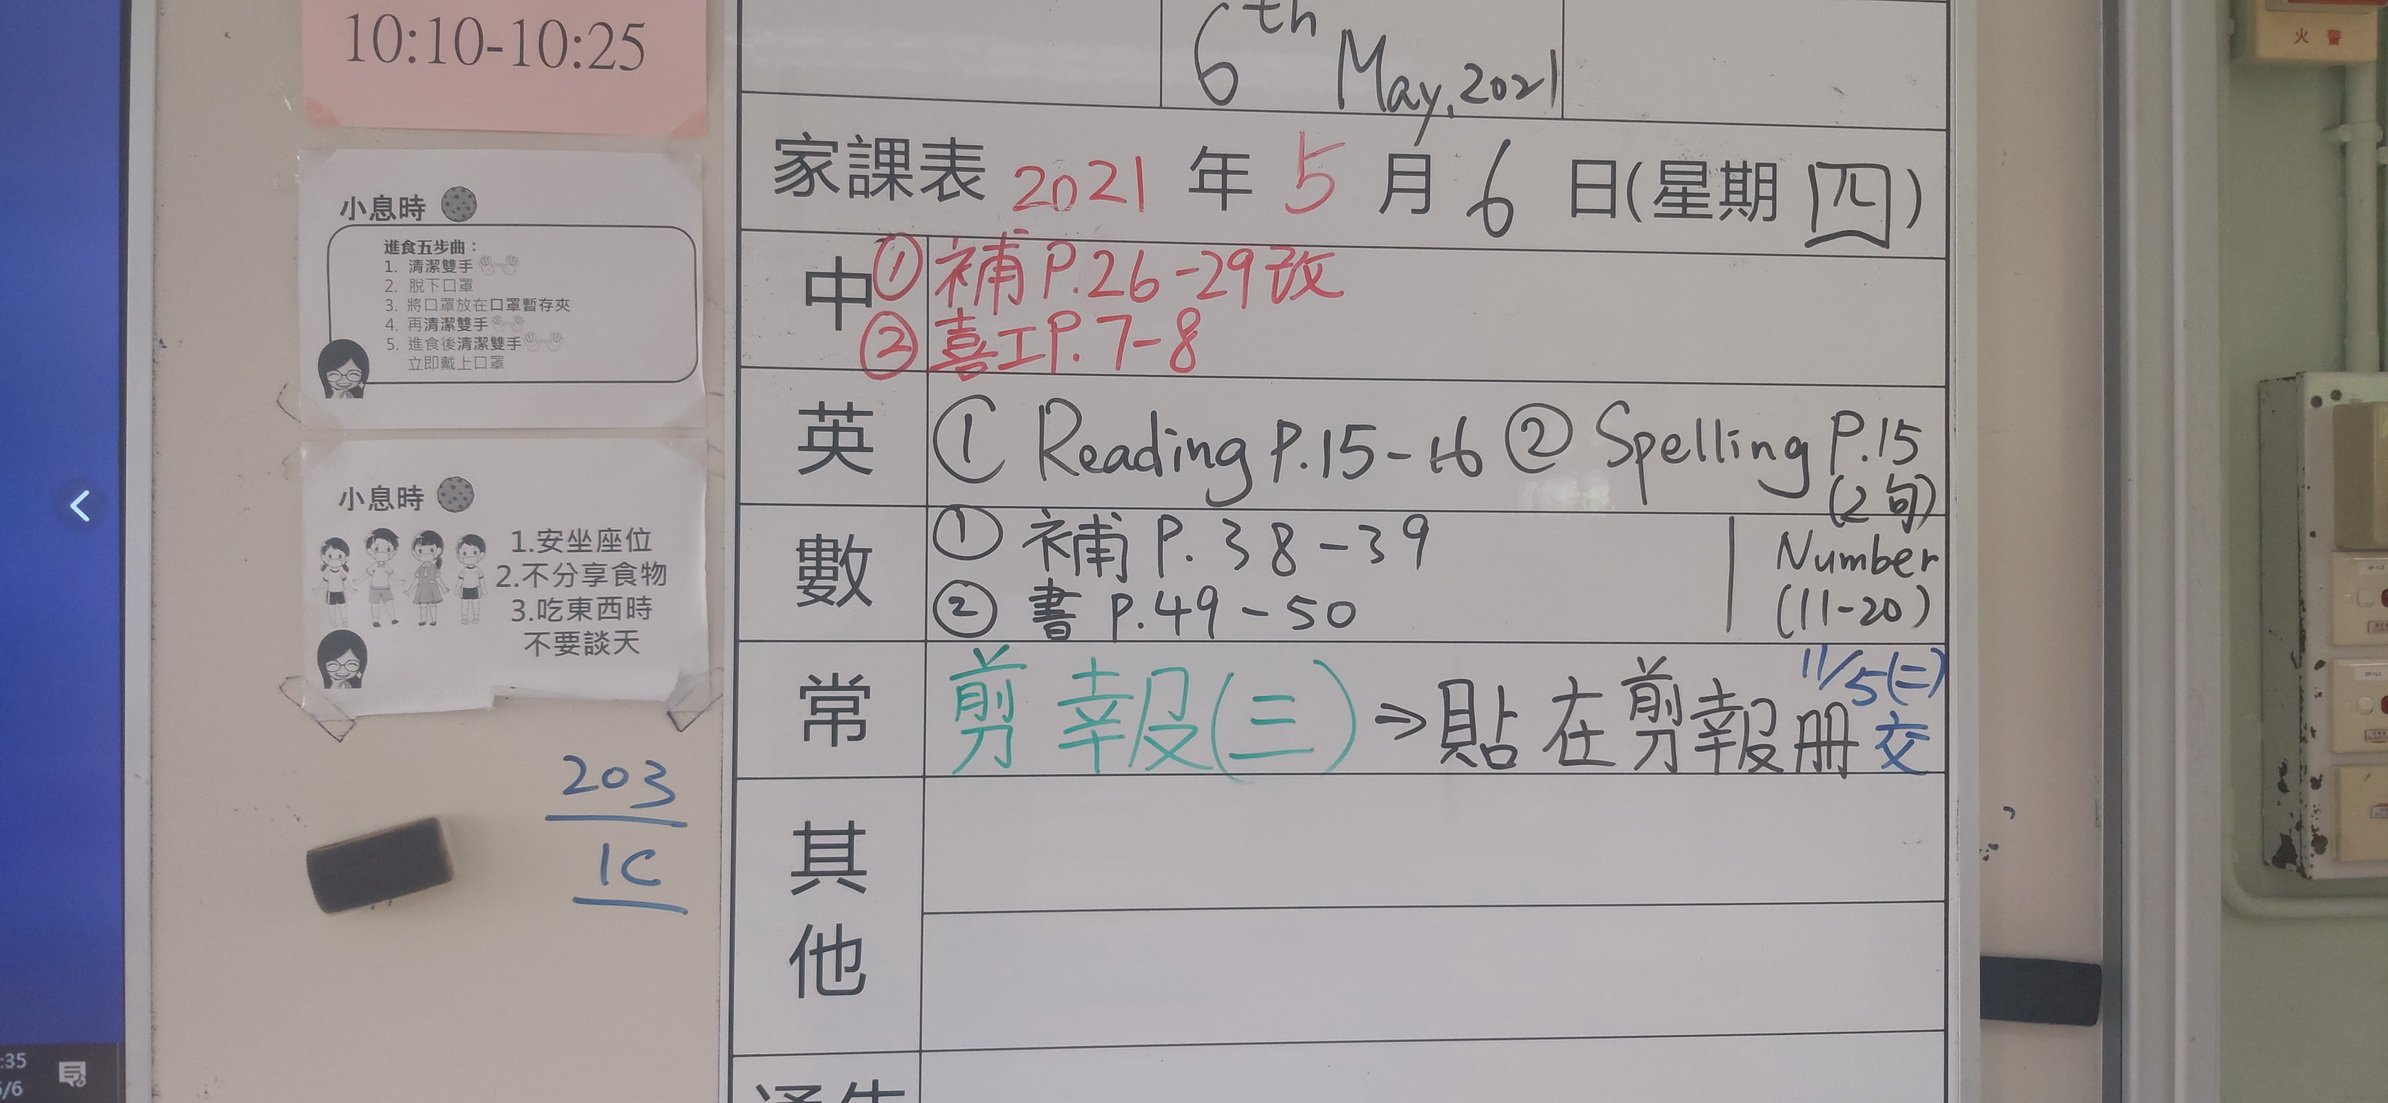 10:10-10:25
小息時
進食五步曲：
1. 清潔雙手
2. 脫下口罩
3. 將口罩放在口罩暫存夾
4. 再清潔雙手
5. 進食後清潔雙手
立即戴上口罩
小息時
1.安坐座位
2.不分享食物
3.吃東西時
不要談天
203
1C
:35
6th May, 2021
家課表 2021 年 5 月 6 日(星期四)
中 ① 補 P.26-29改
② 喜工P.7-8
英 ① Reading P.15-16 ② Spelling P.15
(2句)
數 ① 補 P.38-39
② 書 P.49-50
Number
(11-20)
常 剪報(三) ⇒ 貼在剪報冊 11/5(二)
交
其
他
火警